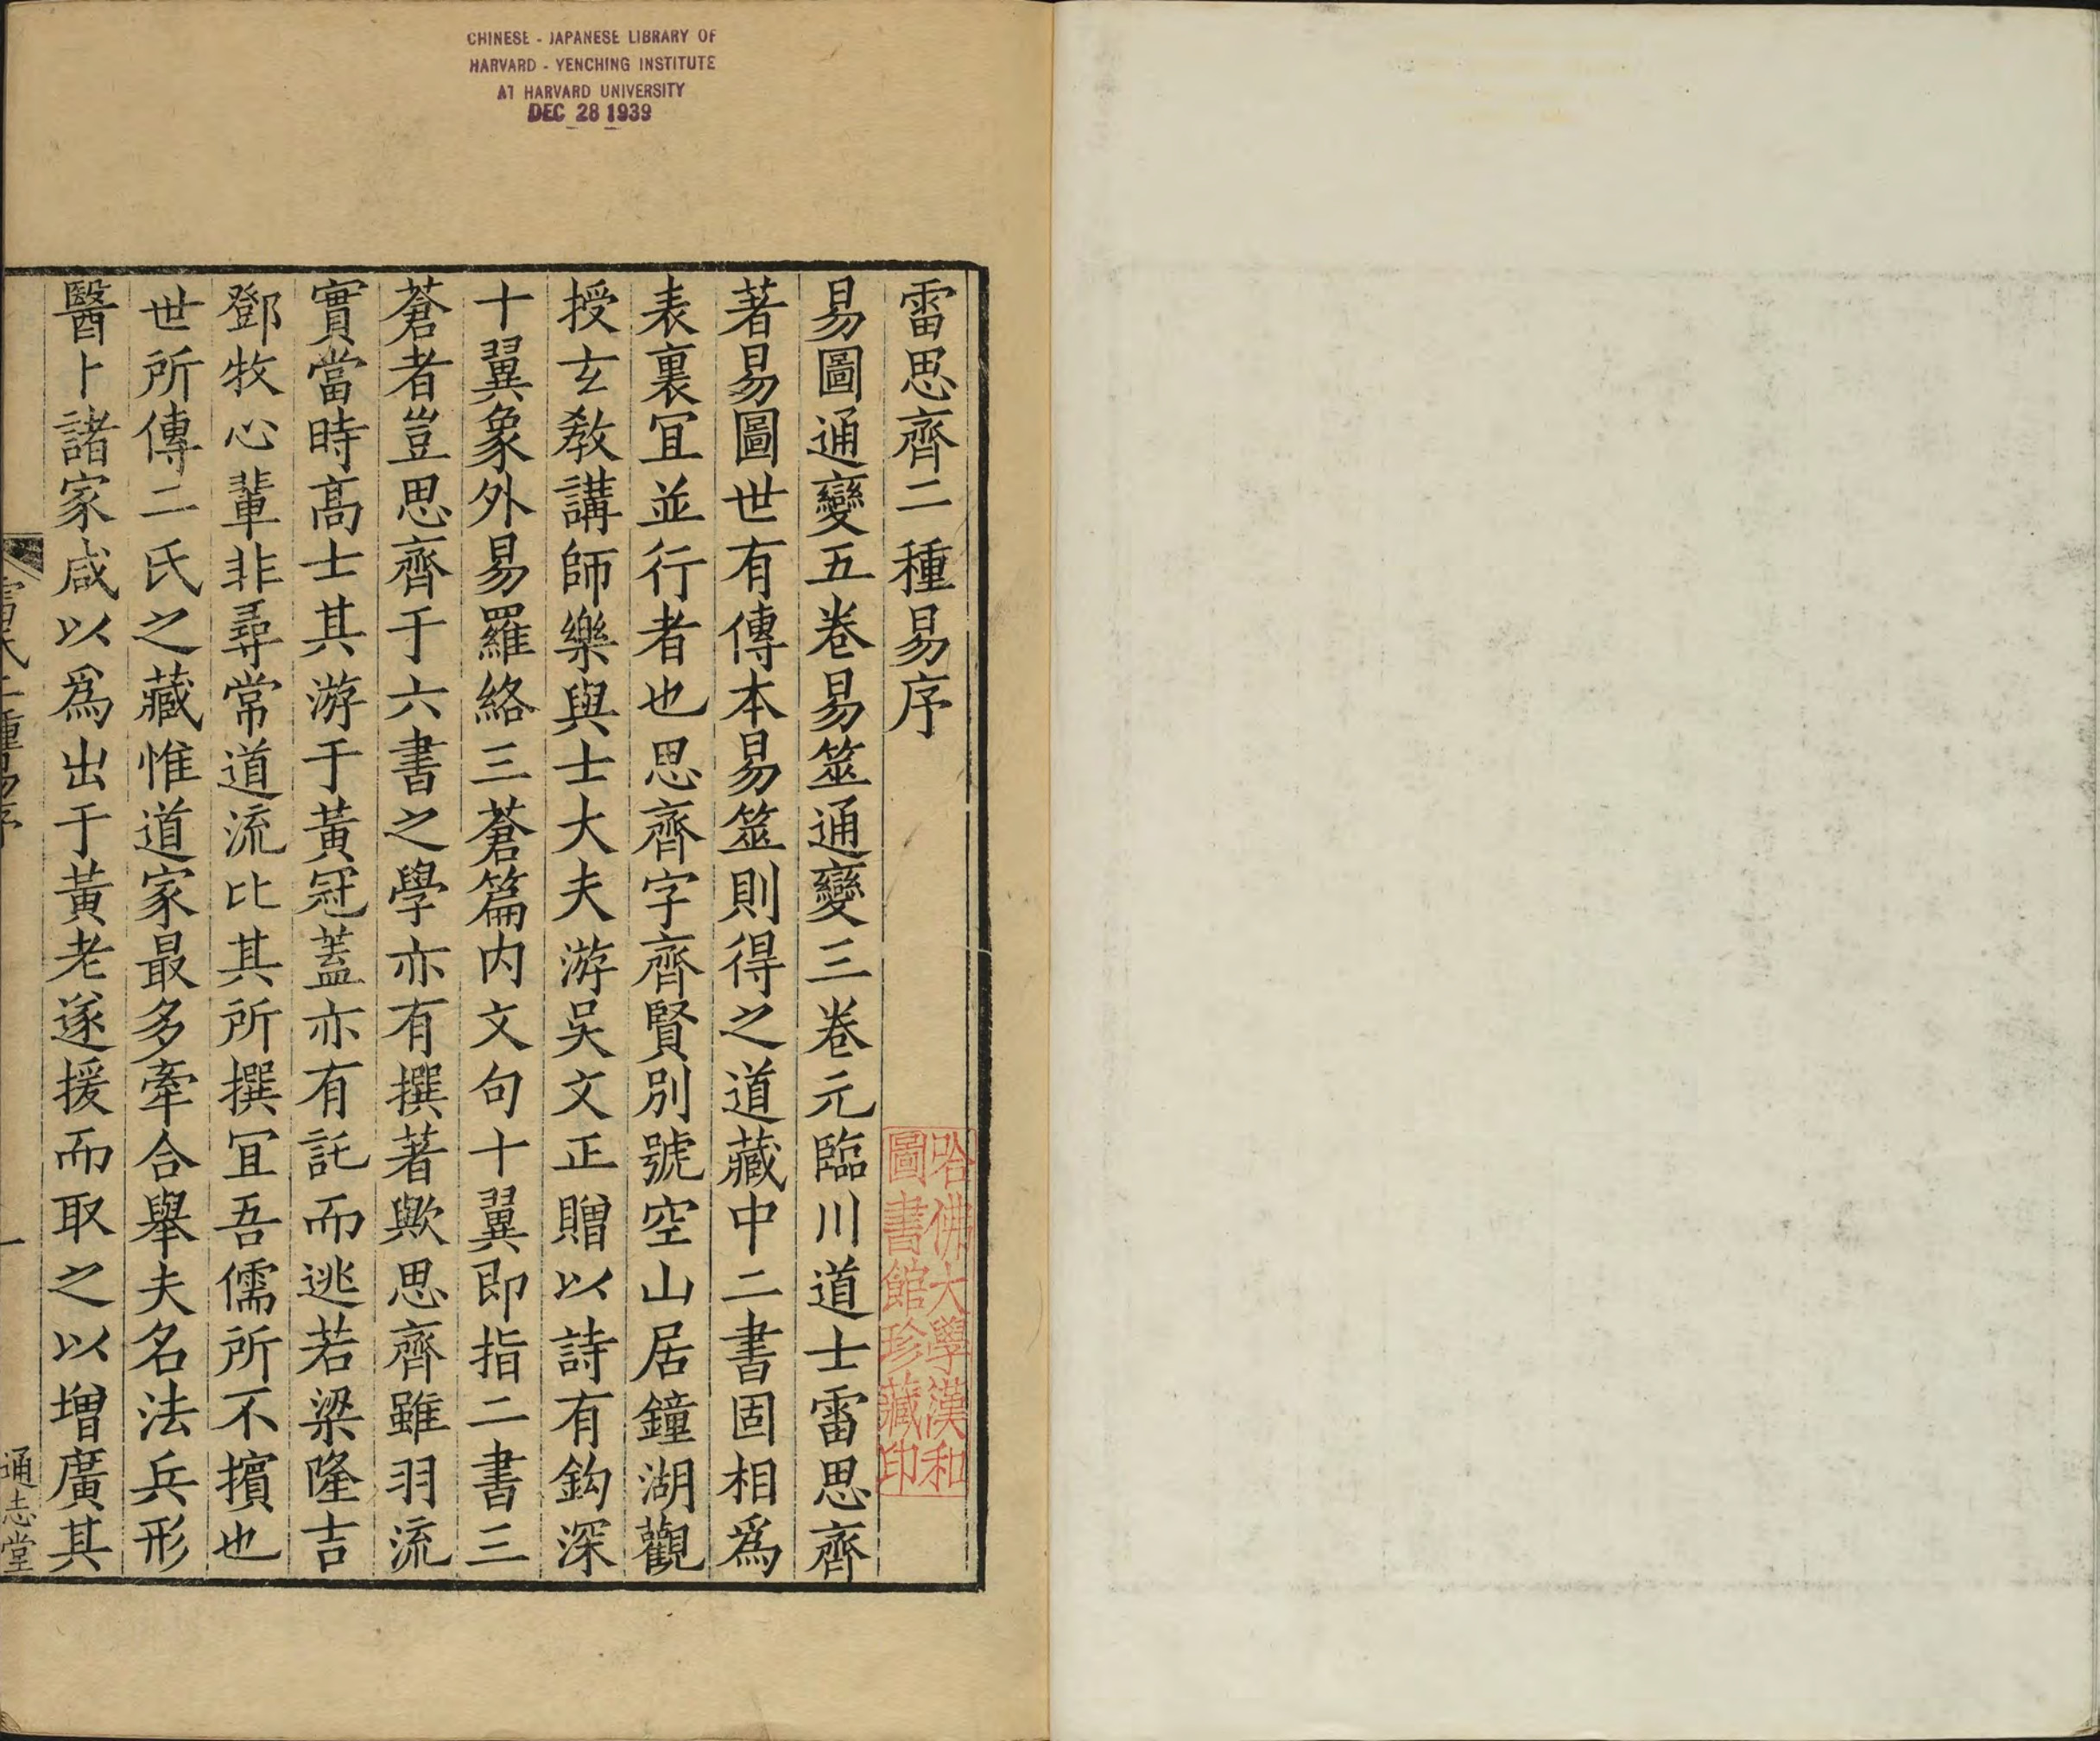 CHINESE - JAPANESE LIBRARY OF
HARVARD - YENCHING INSTITUTE
AT HARVARD UNIVERSITY
DEC 28 1939
雷思齊二種易序
哈佛大學漢和
圖書館珍藏印
易圖通變五卷易筮通變三卷元臨川道士雷思齊
著易圖世有傳本易筮則得之道藏中二書固相爲
表裏宜並行者也思齊字齊賢別號空山居鐘湖觀
授玄教講師樂與士大夫游吴文正贈以詩有鈎深
十翼象外易羅絡三蒼篇内文句十翼即指二書三
蒼者豈思齊于六書之學亦有撰著歟思齊雖羽流
實當時高士其游于黃冠蓋亦有託而逃若梁隆吉
鄧牧心輩非尋常道流比其所撰宜吾儒所不擯也
世所傳二氏之藏惟道家最多牽合舉夫名法兵形
醫卜諸家咸以爲出于黃老遂援而取之以增廣其
雷氏二種易序
一
通志堂